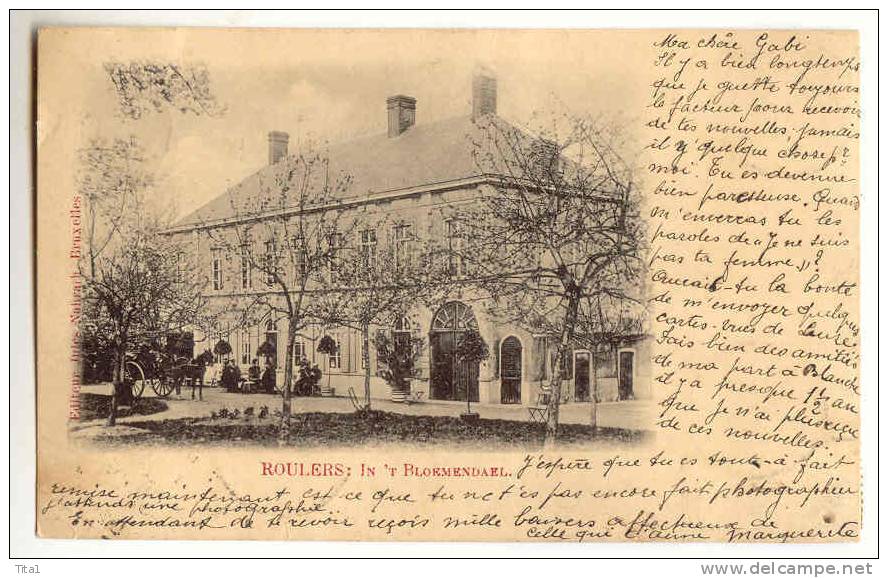 Ma chère Gabi
Il y a bien longtemps
que je guette toujours
le facteur pour recevoir
de tes nouvelles, jamais
il y' quelque chose pr
moi. Tu es devenue
bien paresseuse. Quand
m'enverras tu les
paroles de "Je ne suis
pas ta femme"?
Aurais-tu la bonté
de m'envoyer quelques
cartes-vues de
Fais bien des amitiés
de ma part à Blanche
il y a presque 1 1/2 an
que je n'ai plus reçu
de ces nouvelles.
Editeur Jules Nahrath, Bruxelles
ROULERS: IN 'T BLOEMENDAEL.
J'espère que tu es tout-à fait
remise maintenant est ce que tu ne t'es pas encore fait photographier
j'attends une photographie
En attendant de te revoir reçois mille baisers affectueux de
celle qui t'aime Marguerite
Tita1
http://www.delcampe.net